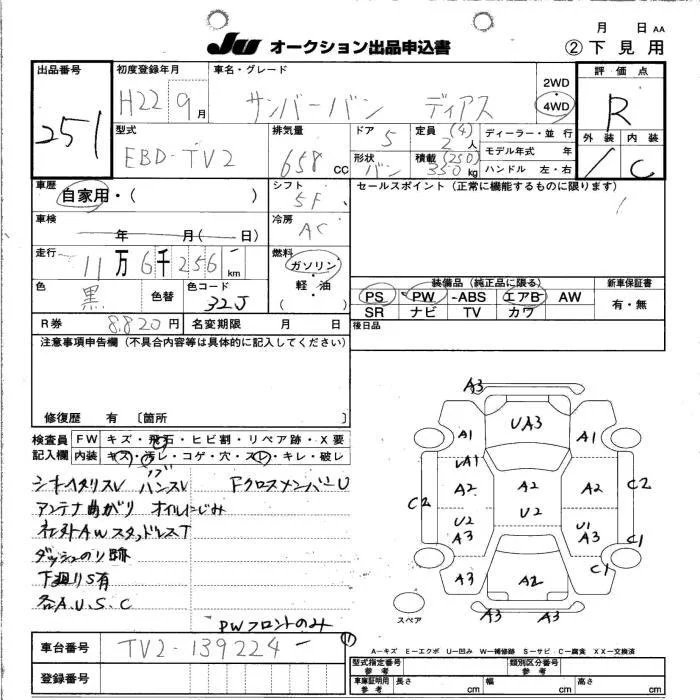 JU オークション出品申込書
月 日 AA
② 下見用
出品番号
251
初度登録年月
H22 9月
車名・グレード
サンバーバン ディアス
2WD
4WD
評価点
R
外装 内装
/ C
型式
EBD-TV2
排気量
658 CC
ドア
5
定員 (4)
2 人
形状
バン
積載 (250)
350 kg
ディーラー・並 行
モデル年式 年
ハンドル 左・右
車歴
自家用・( )
シフト
5F
セールスポイント (正常に機能するものに限ります)
車検
年 月( 日)
冷房
AC
走行
11万6千256 km
燃料
ガソリン
軽・油
( )
色
黒
色替
色コード
32J
装備品 (純正品に限る)
PS PW -ABS エアB AW
SR ナビ TV カワ
新車保証書
有・無
R券 8820円
名変期限 月 日
後日品
注意事項申告欄 (不具合内容等は具体的に記入してください)
修復歴 有 〔箇所 〕
検査員 記入欄
FW キズ・飛石・ヒビ割・リペア跡・X要
内装 キズ・汚レ・コゲ・穴・スレ・キレ・破レ
シートヘタリスレ ハンスレ FクロスメンバーU
アンテナ曲がり オイルにじみ
社外AWスタッドレスT
ダッシュのり跡
下廻りS有
各A.U.S.C
PWフロントのみ
A3
UA3
A1 A1
UA1
A2 A2 A2
C2 C2
U2 U2 U1
A3 A3 C1
A3 A2 C1
A3 A3
スペア
車台番号 TV2-139224
登録番号
A-キズ E-エクボ U-凹み W-補修跡 S-サビ C-腐食 XX-交換済
型式指定番号 参考
類別区分番号 参考
車庫証明用 参考
長さ cm 幅 cm 高さ cm